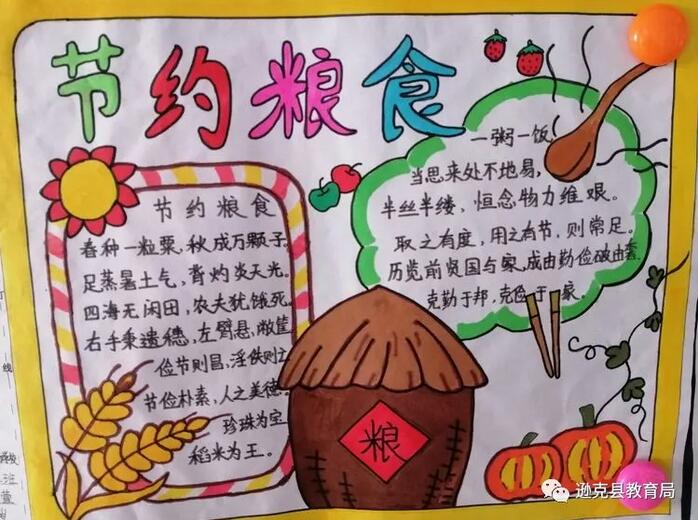 节约粮食
节约粮食
春种一粒粟，秋成万颗子。
足蒸暑土气，背灼炎天光。
四海无闲田，农夫犹饿死。
右手秉遗穗，左臂悬敝筐
俭节则昌，淫佚则亡
节俭朴素，人之美德。
珍珠为宝
稻米为王。
一粥一饭，
当思来处不地易，
半丝半缕，恒念物力维艰。
取之有度，用之有节，则常足。
历览前贤国与家，成由勤俭破由奢
克勤于邦，克俭于家。
粮
逊克县教育局